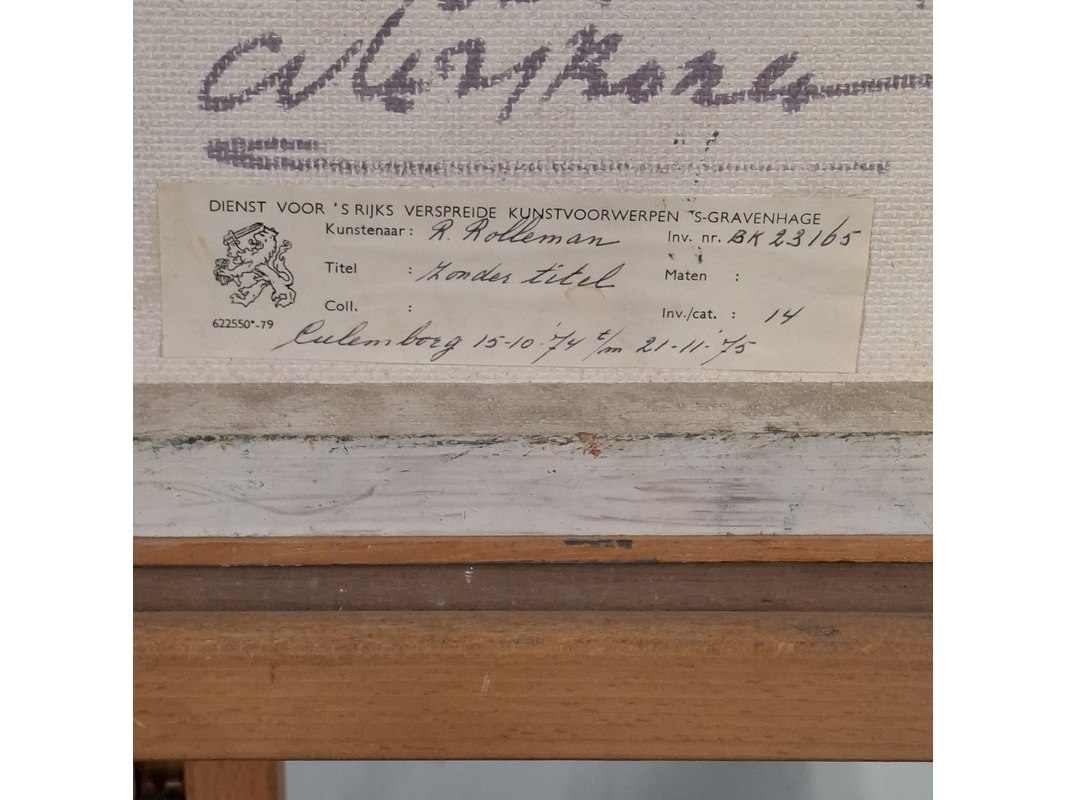 DIENST VOOR 'S RIJKS VERSPREIDE KUNSTVOORWERPEN 'S-GRAVENHAGE
Kunstenaar: R. Rolleman Inv. nr. BK 23165
Titel : Zonder titel Maten :
Coll. : Inv./cat. : 14
622550*-79
Culemborg 15-10-'74 t/m 21-11-'75